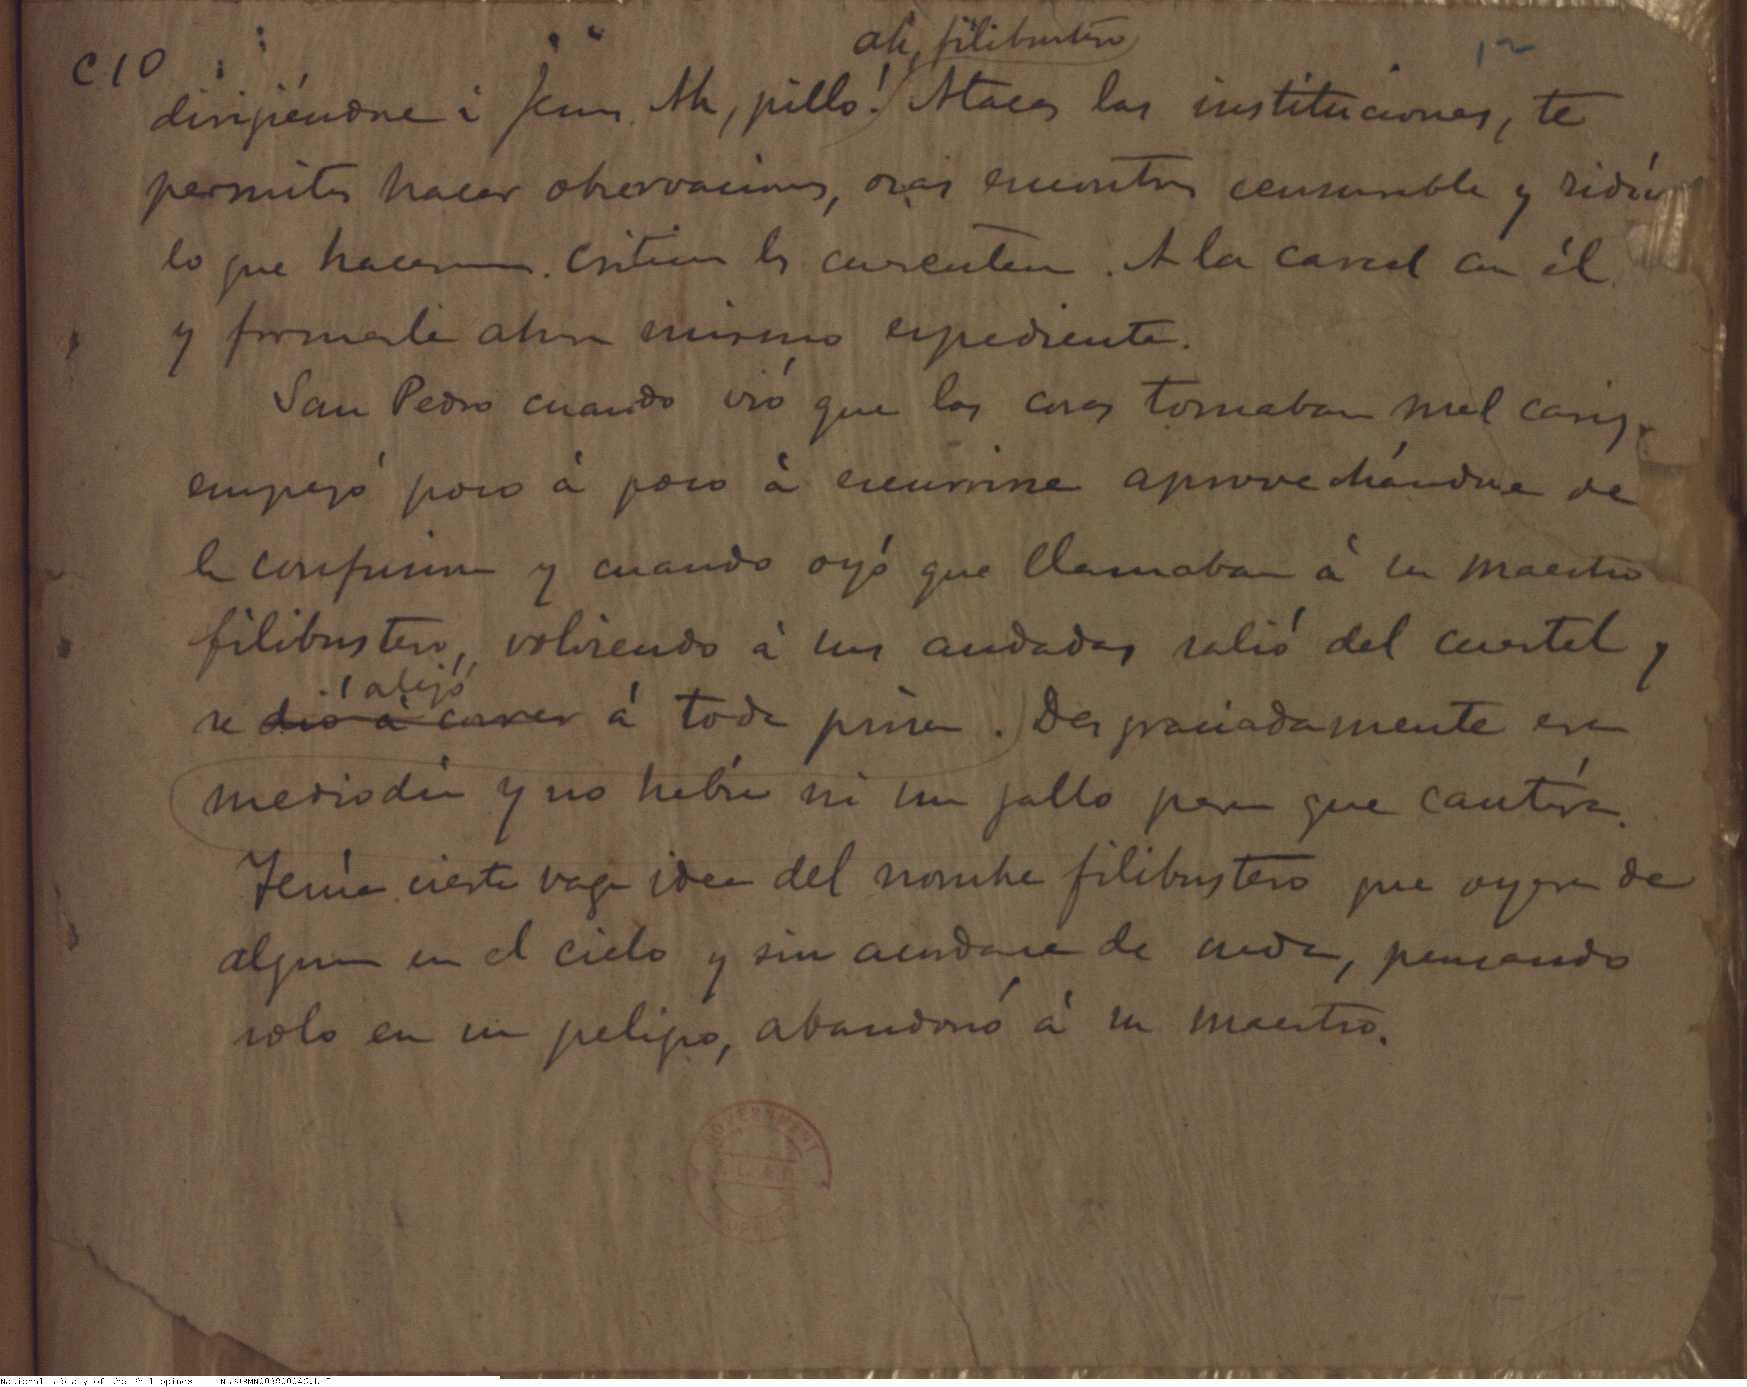 ah, filibustero
C10
12
dirijiéndose á Jesus. Ah, pillo! Atacas las instituciones, te
permites hacer observaciones, osas encontrar censurable y
lo que hacemos. A la carcel con él
y formarle ahora mismo espediente.
San Pedro cuando vió que las cosas tomaban mal cariz,
empezó poco á poco á escurrirse aprovechándose de
la confusion y cuando oyó que llamaban á su maestro
filibustero, volviendo á sus andadas salió del cuartel y
alejó
se dió á correr á toda prisa. Desgraciadamente era
mediodía y no había ni un gallo para que cantára.
Tenía cierta vaga idea del nombre filibustero que oyera de
alguno en el cielo y sin acordarse de nada, pensando
solo en su peligro, abandonó á su maestro.
GOVERNMENT
National Library of the Philippines